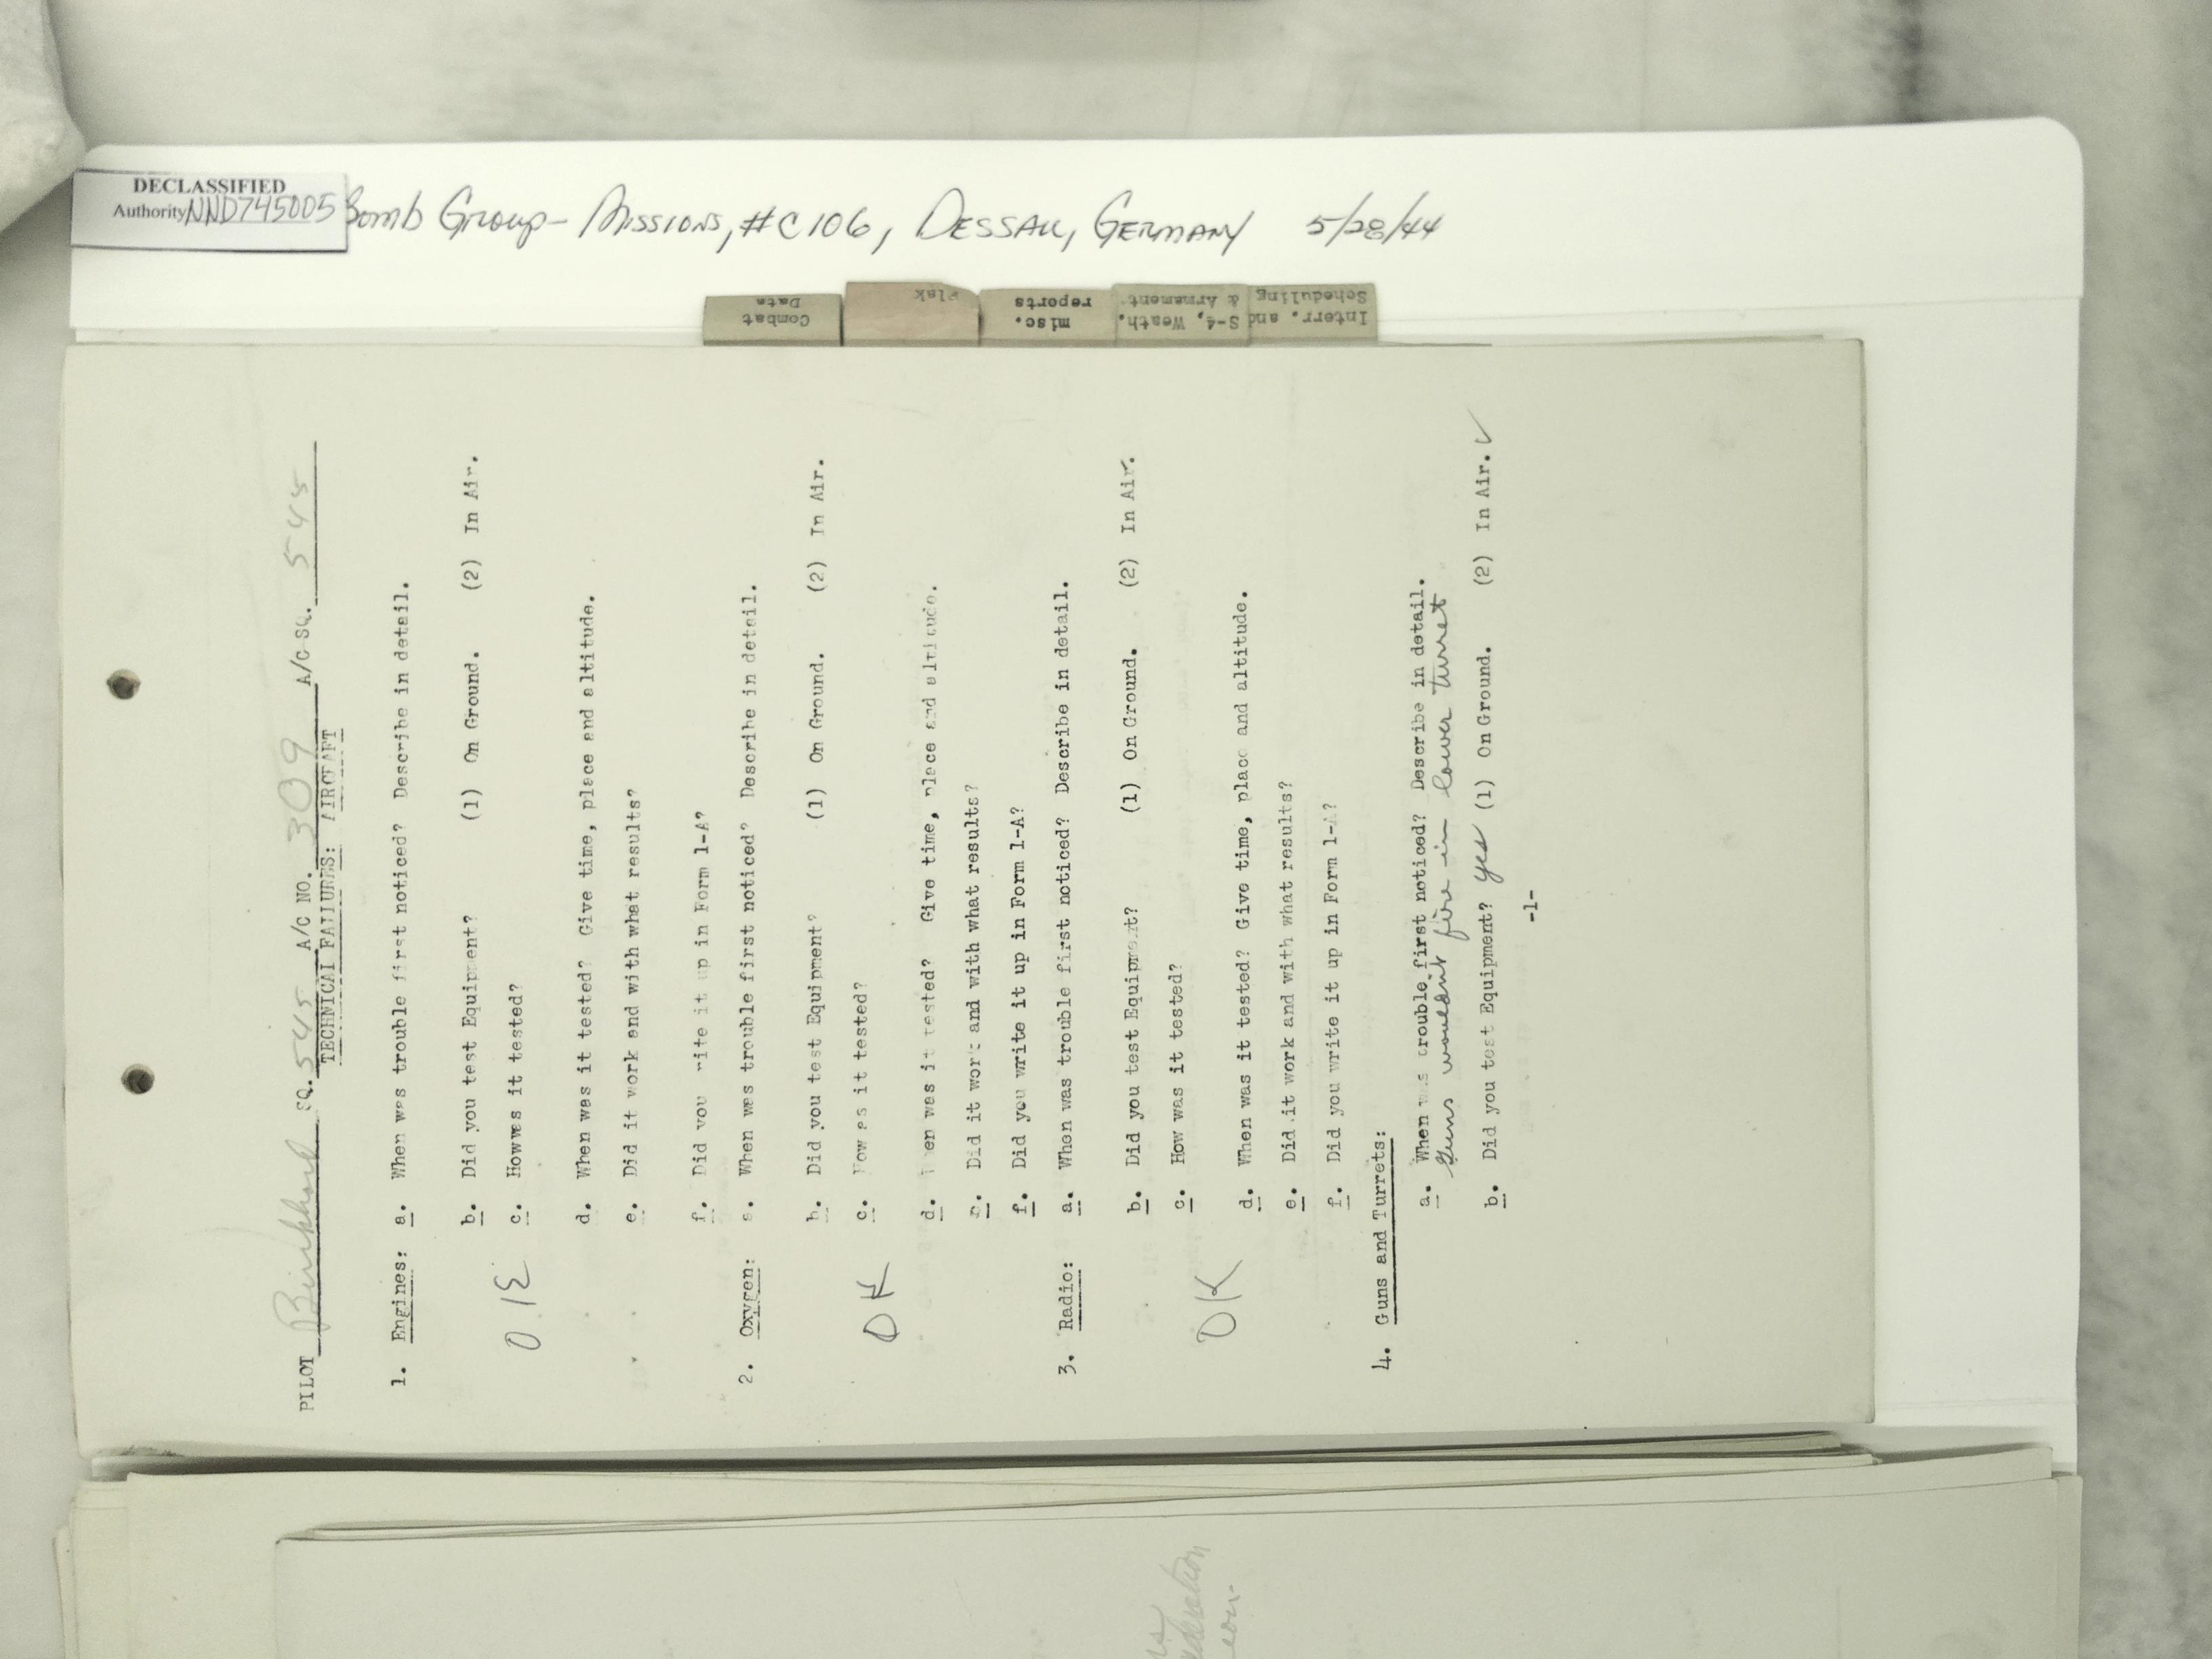 DECLASSIFIED
Authority NND745005
Bomb Group - Missions, #C106, Dessau, Germany 5/28/44
Combat
Data
Flak
misc.
reports
S-4, Weath.
& Armament
Interr. and
Scheduling
PILOT SQ. 545 A/C NO. 309 A/C SQ. 545
TECHNICAL FAILURES: AIRCRAFT
1. Engines: a. When was trouble first noticed? Describe in detail.
b. Did you test Equipment? (1) On Ground. (2) In Air.
c. How was it tested?
OK
d. When was it tested? Give time, place and altitude.
e. Did it work and with what results?
f. Did you write it up in Form 1-A?
2. Oxygen: a. When was trouble first noticed? Describe in detail.
b. Did you test Equipment? (1) On Ground. (2) In Air.
c. How as it tested?
OK
d. When was it tested? Give time, place and altitude.
e. Did it work and with what results?
f. Did you write it up in Form 1-A?
3. Radio: a. When was trouble first noticed? Describe in detail.
b. Did you test Equipment? (1) On Ground. (2) In Air.
c. How was it tested?
OK
d. When was it tested? Give time, place and altitude.
e. Did it work and with what results?
f. Did you write it up in Form 1-A?
4. Guns and Turrets:
a. When was trouble first noticed? Describe in detail.
Guns wouldn't fire in lower turret
b. Did you test Equipment? yes (1) On Ground. (2) In Air. ✓
-1-